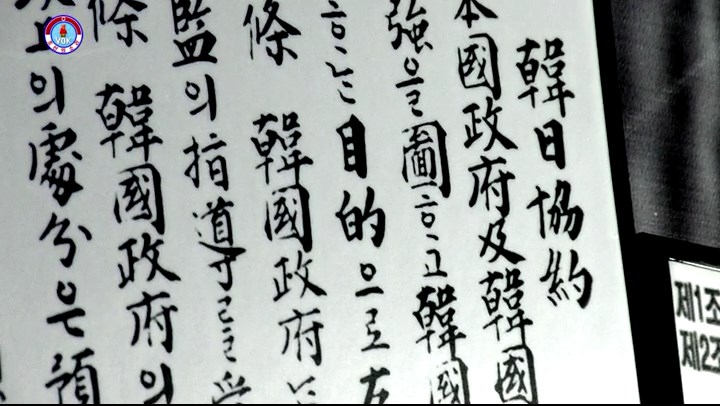 韓日協約
本國政府及韓國
強을圖ᄒᆞ고韓國
ᄒᆞᄂᆞᆫ目的으로左
條 韓國政府
監의指導ᄅᆞᆯ受
條 韓國政府의
上의處分은預
제1조
제2조
VOK